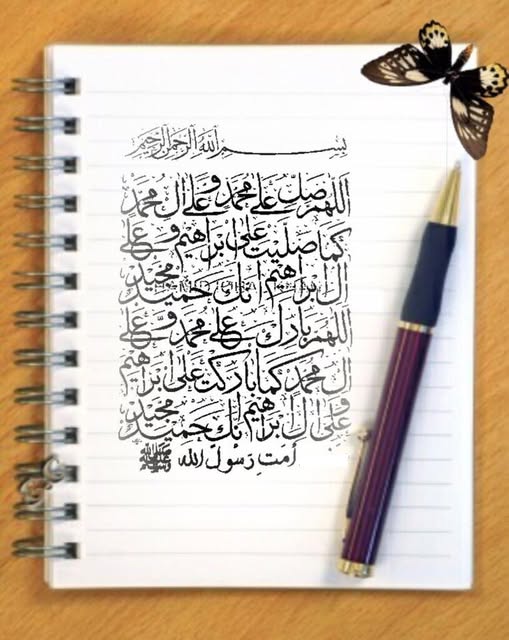 بِسْمِ اللهِ الرَّحْمٰنِ الرَّحِيْمِ
اللهم صل على محمد وعلى ال محمد
كما صليت على ابراهيم وعلى
ال ابراهيم انك حميد مجيد
اللهم بارك على محمد وعلى
ال محمد كما باركت على ابراهيم
وعلى ال ابراهيم انك حميد مجيد
اُمتِ رَسول الله ﷺ